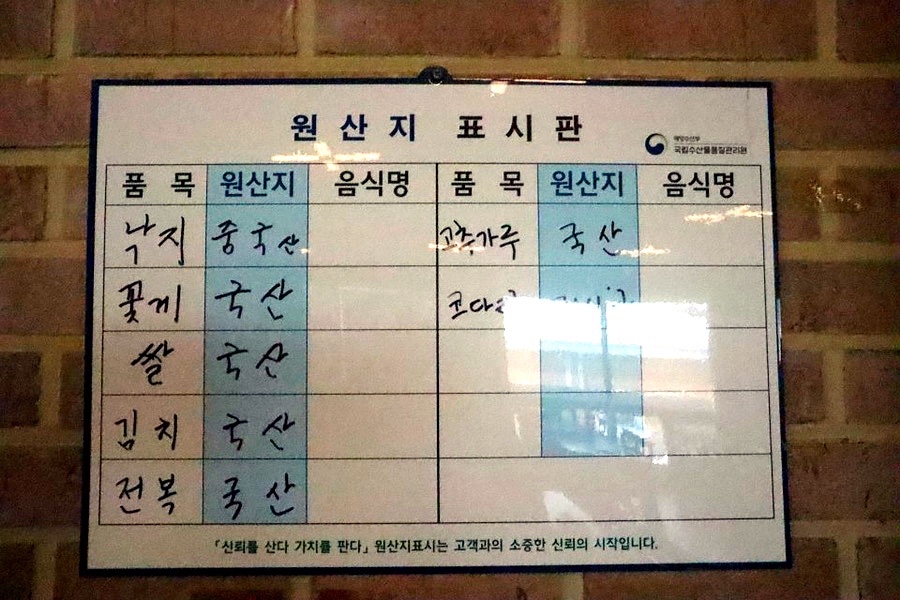 원산지 표시판
해양수산부
국립수산물품질관리원
품목 원산지 음식명 품목 원산지 음식명
낙지 중국산 고추가루 국산
꽃게 국산
쌀 국산
김치 국산
전복 국산
「신뢰를 산다 가치를 판다」 원산지표시는 고객과의 소중한 신뢰의 시작입니다.